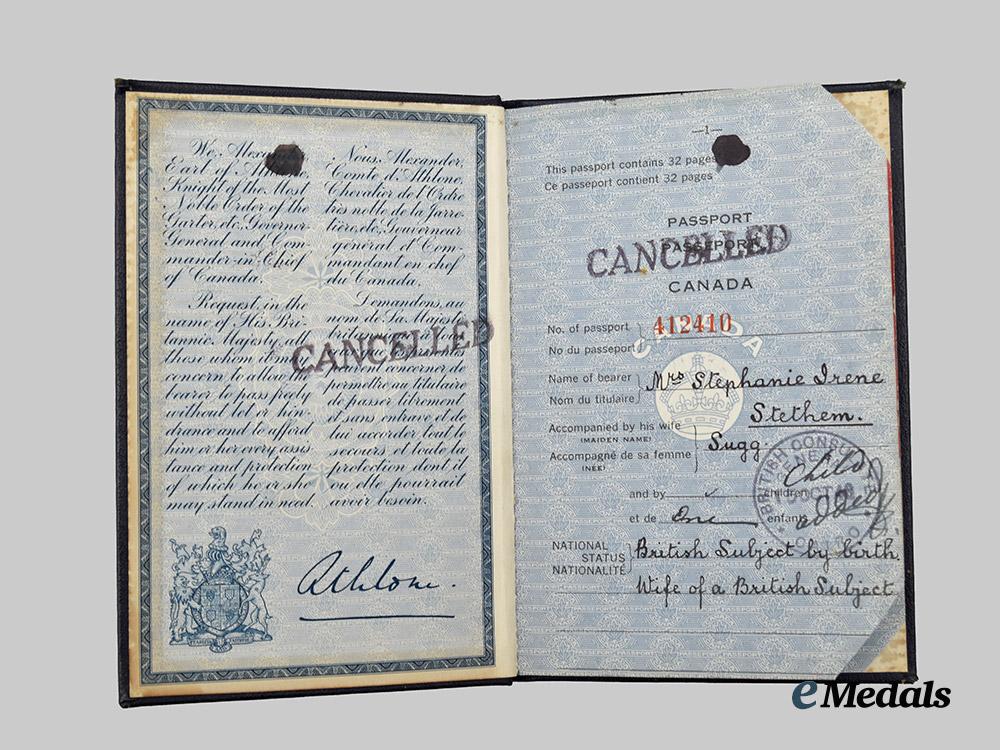 We, Alexander,
Earl of
Knight of the Most
Noble Order of the
Garter, etc, Governor
General and Com-
mander-in-Chief
of Canada,
Request, in the
name of His Bri-
tannic Majesty, all
those whom it may
concern, to allow the
bearer to pass freely
without let or hin-
drance and to afford
him or her every assis-
tance and protection
of which he or she
may stand in need.
Nous, Alexander,
Comte d'Athlone,
Chevalier de l'Ordre
très noble de la Jarre-
tière, etc, Gouverneur
général et Com-
mandant en chef
du Canada,
Demandons, au
nom de Sa Majesté
concerner de
permettre au titulaire
de passer librement
et sans entrave et de
lui accorder tout le
secours et toute la
protection dont il
ou elle pourrait
avoir besoin.
CANCELLED
Athlone.
—1—
This passport contains 32 pages
Ce passeport contient 32 pages
PASSPORT
PASSEPORT
CANCELLED
CANADA
No. of passport
No du passeport
412410
CANADA
Name of bearer
Nom du titulaire
Mrs Stephanie Irene
Stethem.
Accompanied by his wife
(MAIDEN NAME)
Accompagné de sa femme
(NÉE)
Sugg
and by children
et de One enfants
BRITISH
Child
NATIONAL
STATUS
NATIONALITÉ
British Subject by birth.
Wife of a British Subject
eMedals